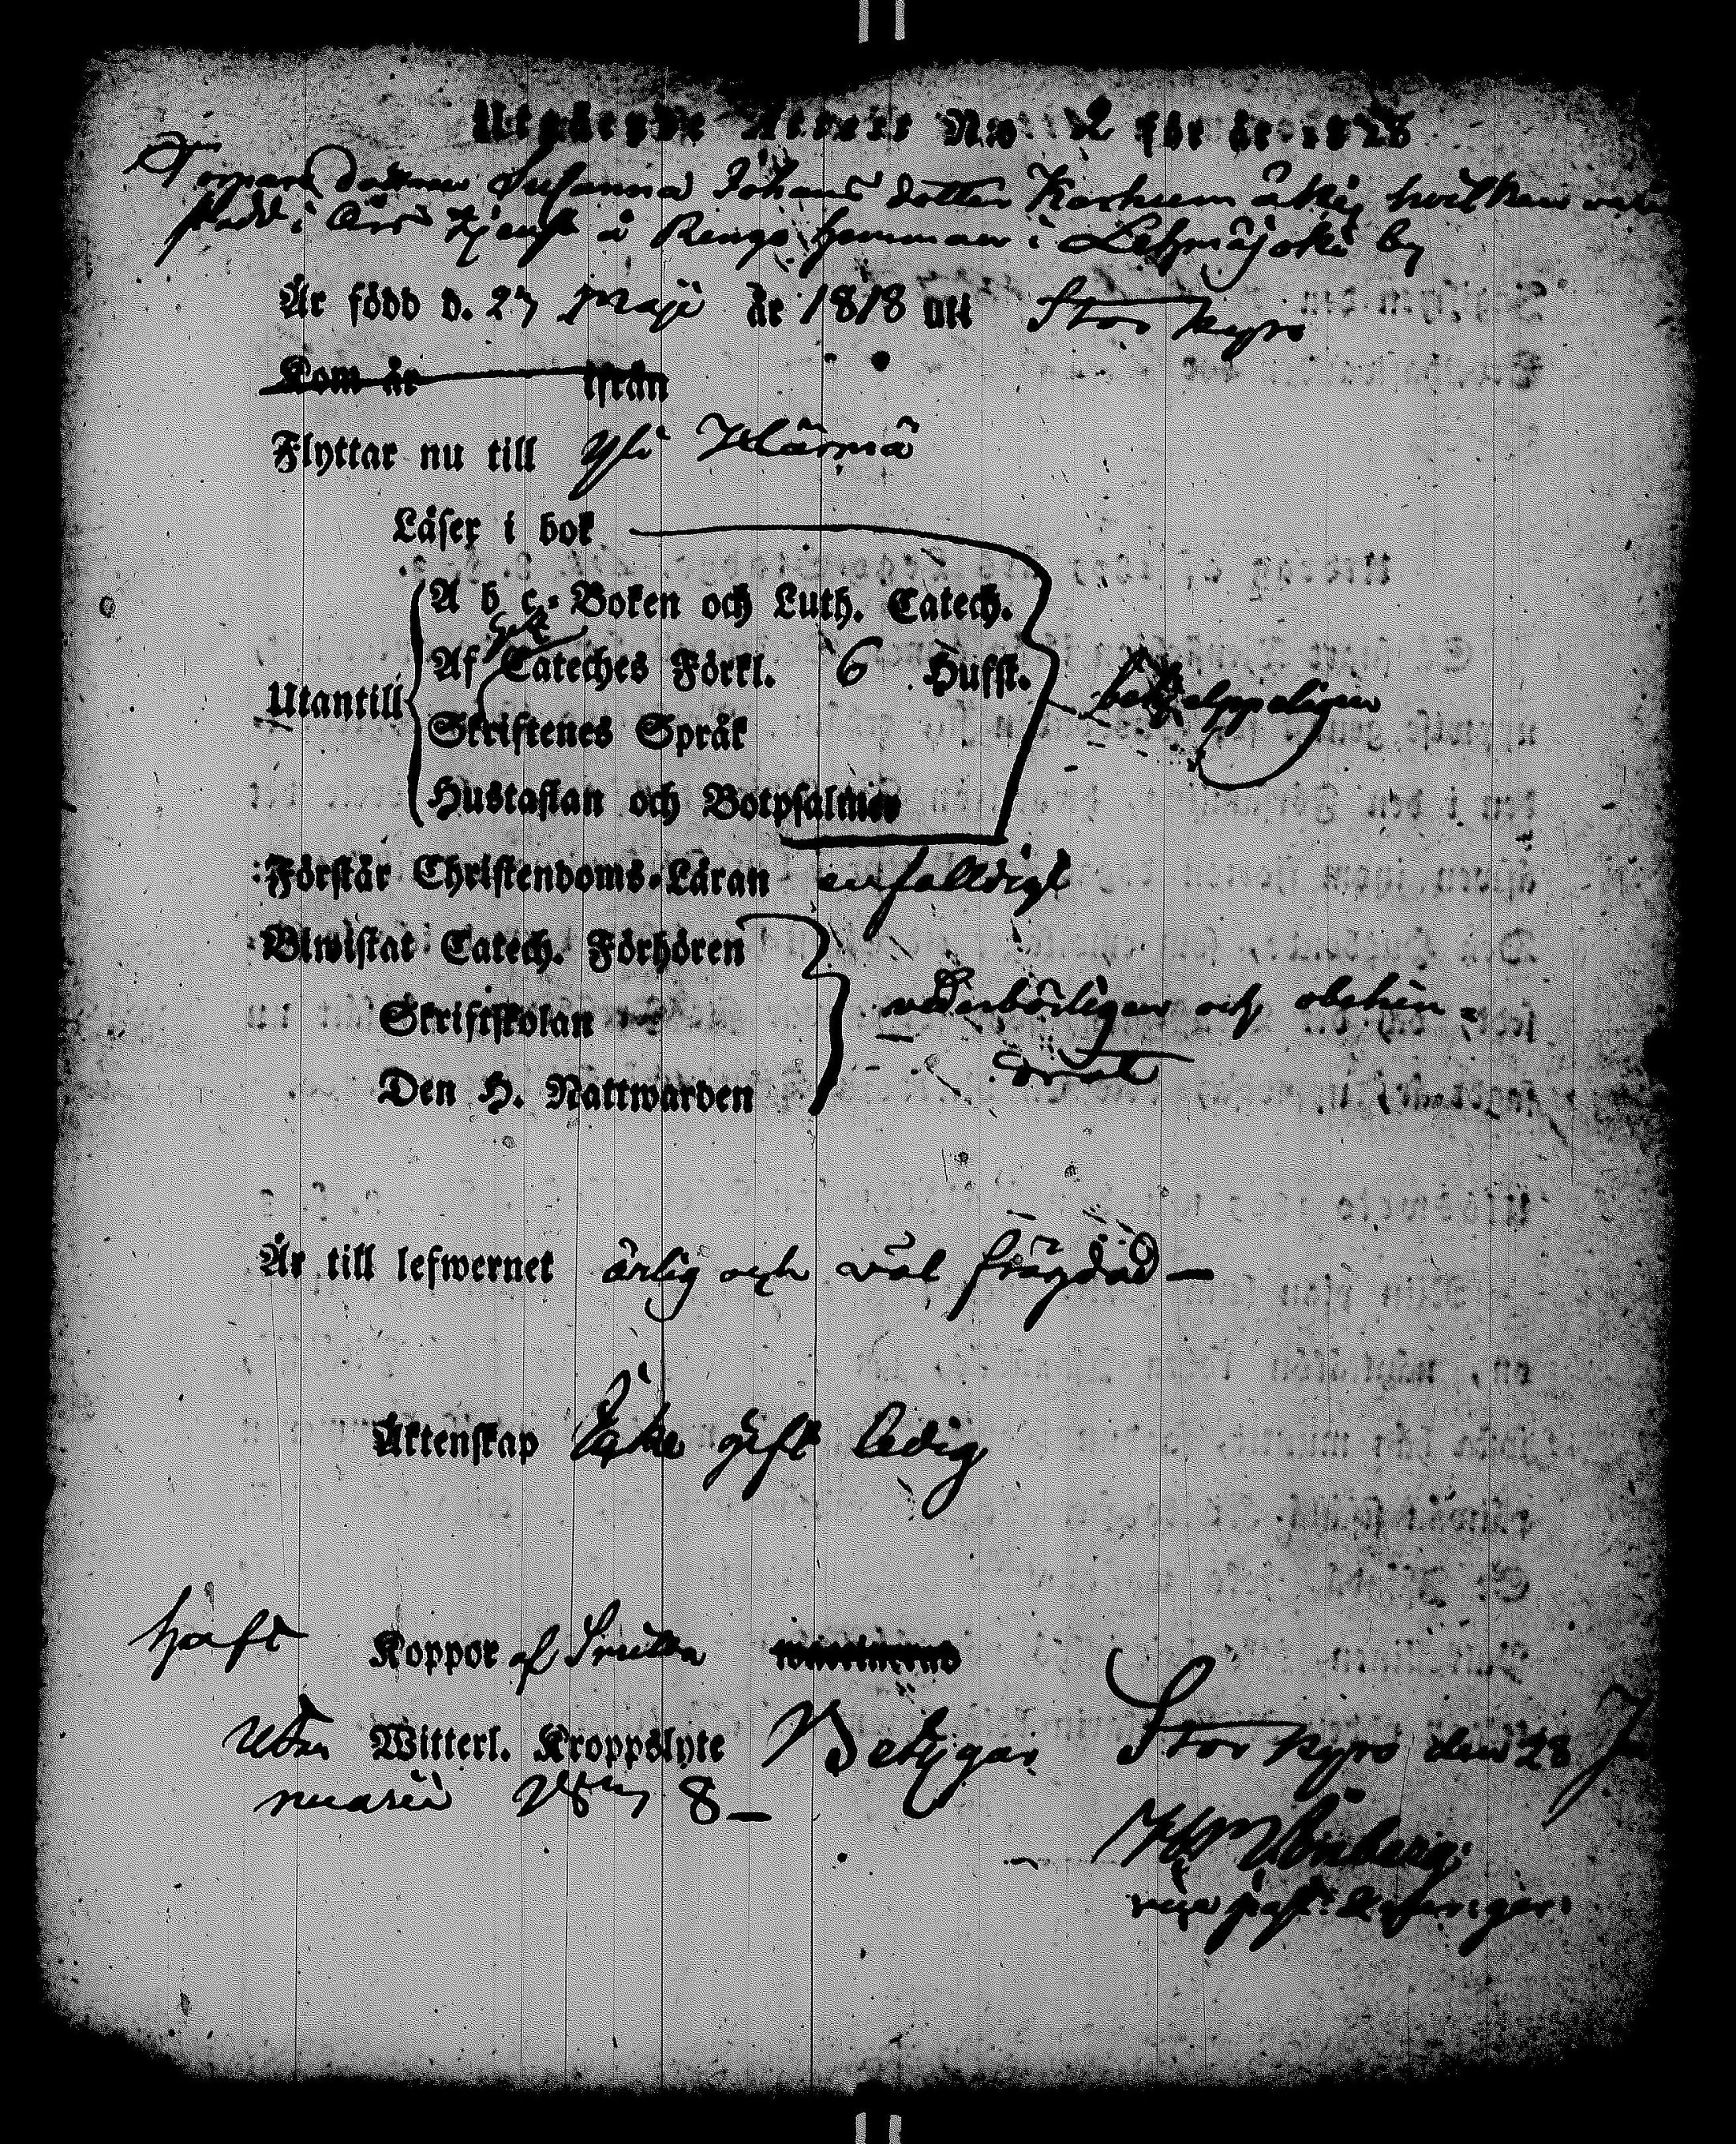 Utgående Attest N:o 2 för år 1828
Torpare dottren Susanna Johans dotter hvilken
stadd i års tjenst å Rengo hemman i Lehmäjoki by
Är född d. 27 Maji år 1818 uti Stor Kyro
Kom år ifrån
Flyttar nu till Yli Härmä
Läser i bok
A b c-Boken och Luth. Catech.
Af Cateches Förkl. 6 Hufst.
Utantill
Skriftenes Språk
Hustaflan och Botpsalmer
Förstår Christendoms-Läran enfalldigt
Biwistat Catech. Förhören
Skriftskolan
Den H. Nattwarden
vederbörligen och obehin-
drat
Är till lefwernet ärlig och väl frägdad —
Äktenskap Icke gift ledig
haft Koppor af
utan Witterl. Kroppslyte Betygar Stor Kyro den 28 Ja
nuarii 8 —